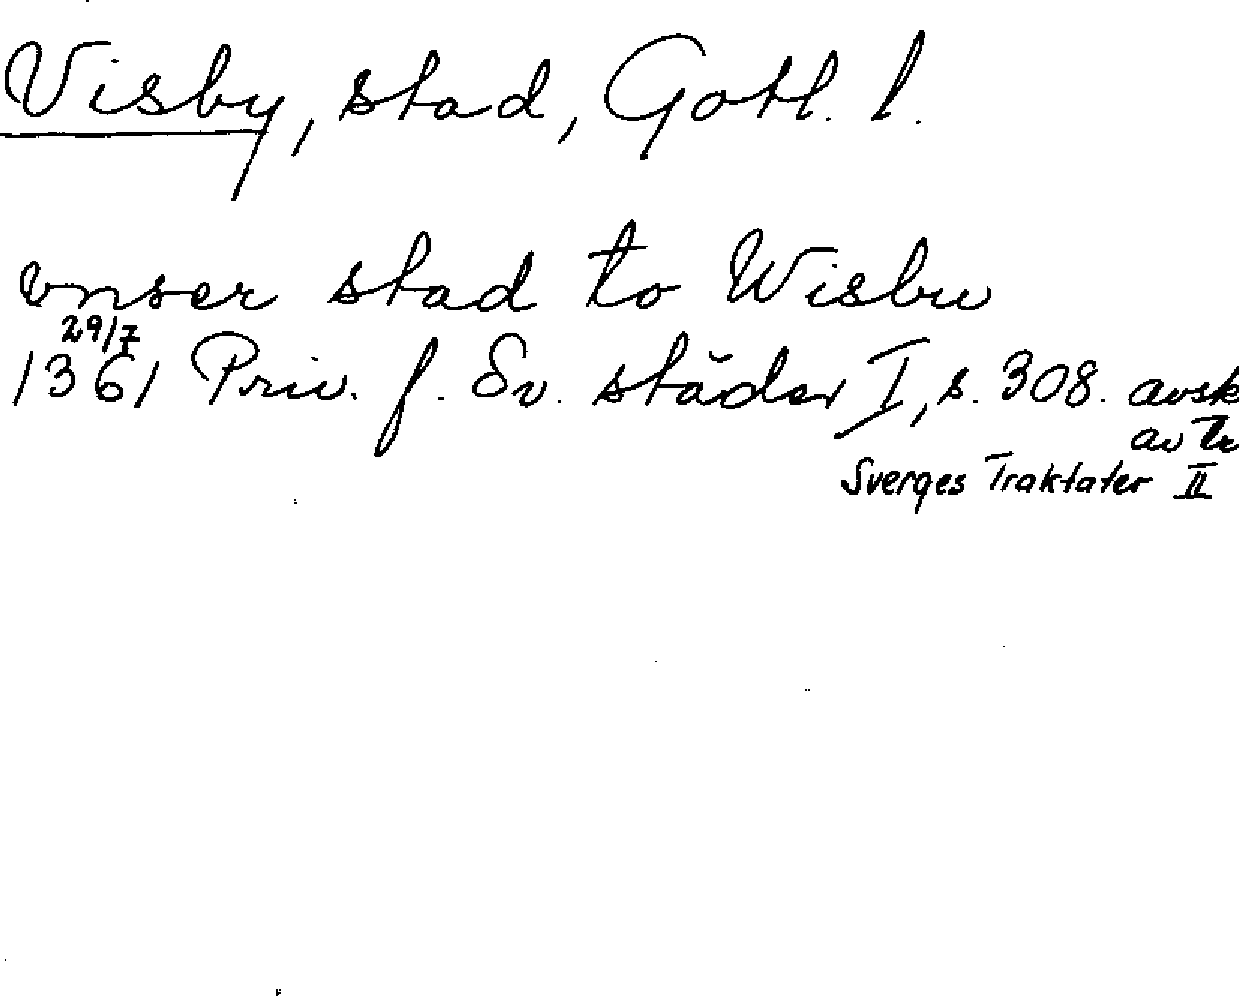 Visby, stad, Gotl. l.
vnser stad to Wisbu
29/7
1361 Priv. f. Sv. städer I, s. 308. avsk
av
Sverges Traktater II